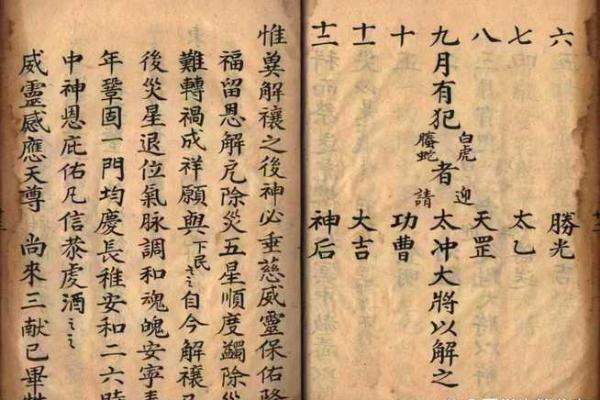 六 勝光
七 太乙
八 天罡
九月有犯白虎螣蛇者迎請太冲大將以解之
十 功曹
十一 大吉
十二 神后
惟奠解禳之後神必垂慈威靈保佑
福留恩解厄除災五星順度蠲除災
難轉禍成祥願與下民〻〻自今解禳
後災星退位氣脉調和魂魄安寧
年鞏固一門均慶長稚安和二六時
中神恩庇佑凡信恭虔酒〻〻
威靈感應天尊 尚來三献已畢